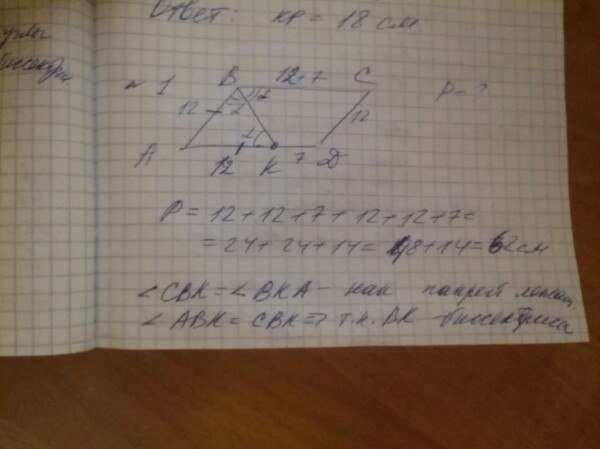 Ответ: KP = 18 см
углы
№ 1
B 12+7 C
P - ?
12
2
2
12
A 12 K 7 D
P = 12+12+7+12+12+7=
= 24+24+14= 48+14=62см
∠CBK=∠BKA - как накрест лежащ.
∠ABK=CBK => т.к. BK - биссектриса